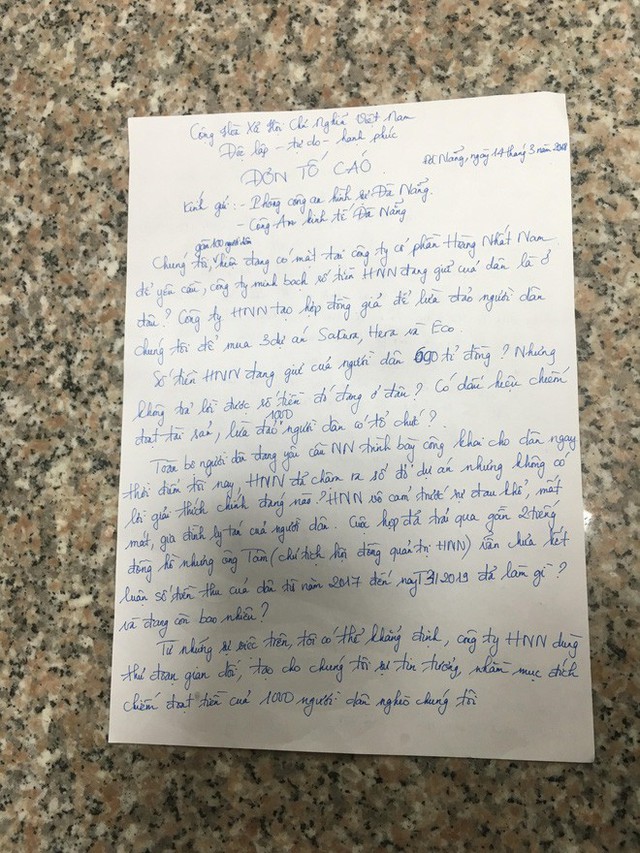 Cộng Hòa Xã Hội Chủ Nghĩa Việt Nam
Độc lập - tự do - hạnh phúc
Đà Nẵng, ngày 14 tháng 3 năm
ĐƠN TỐ CÁO
Kính gửi: - Phòng công an hình sự Đà Nẵng.
- Công An kinh tế Đà Nẵng
gần 100 người dân
Chúng tôi, hiện đang có mặt tại công ty cổ phần Hoàng Nhất Nam
để yêu cầu, công ty minh bạch số tiền HNN đang giữ của dân là ở
đâu? Công ty HNN tạo hợp đồng giả để lừa đảo người dân
chúng tôi để mua 3 dự án Sakura, Hera và Eco.
Số tiền HNN đang giữ của người dân 690 tỉ đồng? Nhưng
không trả lời được số tiền đó đang ở đâu? Có dấu hiệu chiếm
đoạt tài sản, lừa đảo 1000 người dân có tổ chức?
Toàn bộ người dân đang yêu cầu NN trình bày công khai cho dân ngay
thời điểm tối nay, HNN đã chậm ra sổ đỏ dự án nhưng không có
lời giải thích chính đáng nào? HNN vô cảm trước sự đau khổ, mất
mát, gia đình ly tán của người dân. Cuộc họp đã trải qua gần 2 tiếng
đồng hồ nhưng ông Tâm (chủ tịch hội đồng quản trị HNN) vẫn chưa kết
luận số tiền thu của dân từ năm 2017 đến nay T3/2019 đã làm gì?
và đang còn bao nhiêu?
Từ những sự việc trên, tôi có thể khẳng định, công ty HNN dùng
thủ đoạn gian dối, tạo cho chúng tôi sự tin tưởng, nhằm mục đích
chiếm đoạt tiền của 1000 người dân nghèo chúng tôi